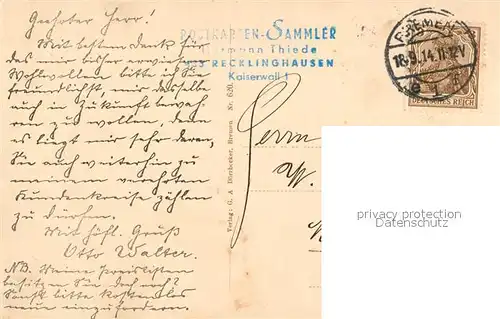 Geehrter Herr!
Mit bestem Dank für
das mir bisher erwiesene
Wohlwollen bitte ich Sie
freundlichst, mir dasselbe
auch in Zukunft bewah-
ren zu wollen, denn
es liegt mir sehr daran,
Sie auch weiterhin zu
meinem verehrten
Kundenkreise zählen
zu dürfen.
Mit höfl. Gruß
Otto Walter.
NB. Meine Preislisten
besitzen Sie doch noch?
Sonst bitte kostenlos
neue einzufordern.
POSTKARTEN-SAMMLER
Hermann Thiede
RECKLINGHAUSEN
Kaiserwall 1
Verlag: G. A. Dörrbecker, Bremen. Nr. 620.
BREMEN
18.9.14.11-12V
DEUTSCHES REICH
Herrn
W.
privacy protection
Datenschutz